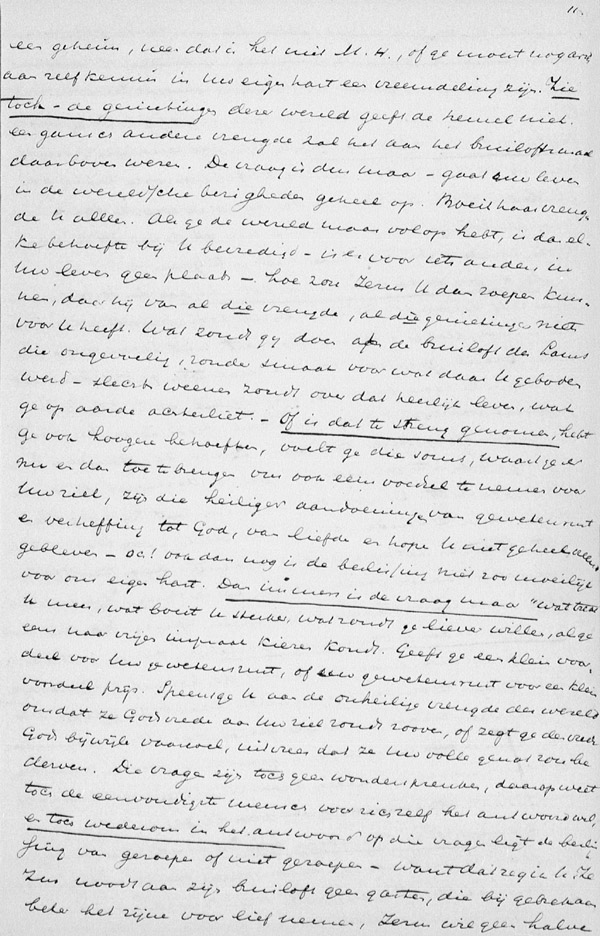 11.
een geheim, neen dat is het niet M. H., of ge moest nog aan
aan zelfkennis in Uw eigen hart een vreemdeling zijn. Zie
toch - de genietingen dezer wereld geeft de hemel niet.
een gansch andere vreugde zal het aan het bruiloftsmaal
daarboven wezen. De vraag is dus maar - gaat Uw leven
in de wereldsche bezigheden geheel op. Boeit haar vreug-
de U alleen. Als ge de wereld maar volop hebt, is dan el-
ke behoefte bij U bevredigd - is er voor iets anders in
Uw leven geen plaats -. hoe zou Jezus U dan roepen kun-
nen, daar hij van al die vreugde, al die genietingen niets
voor U heeft. Wat zoudt gij doen op de bruiloft des Lams
die ongevoelig, zonder smaak voor wat daar U geboden
werd - slechts weenen zoudt over dat heerlijk leven, wat
ge op aarde achterliet. - Of is dat te streng genomen, hebt
ge ook hoogere behoeften, voelt ge die soms, waart ge er
nu en dan toe te brengen om ook eens voedsel te nemen voor
Uw ziel, zijn die heiliger aandoeningen van gewetensrust
en verheffing tot God, van liefde en hope U niet geheel vreemd
gebleven - och! ook dan nog is de beslissing niet zoo moeilijk
voor ons eigen hart. Dan immers is de vraag maar "wat trekt
U meer, wat boeit U sterker, wat zoudt ge liever willen, als ge
eens naar vrije inspraak kiezen kondt. Geeft ge een klein voor-
deel voor Uw gewetensrust, of Uw gewetensrust voor een klein
voordeel prijs. Speent ge U aan de onheilige vreugde der wereld
omdat ze Gods vrede aan Uw ziel zoudt rooven, of zegt ge den vrede
Gods bijwijle vaarwel, uit vrees dat ze Uw volle genot zou be-
derven. Die vragen zijn toch geen wonderspreuken, daarop weet
toch de eenvoudigste mensch voor zichzelf het antwoord wel,
en toch wederom in het antwoord op die vragen ligt de beslis-
sing van geroepen of niet geroepen - want dat zeg ik U Je-
zus noodt aan zijn bruiloft geen gasten, die bij gebrek aan
beter het zijne voor lief nemen, Jezus wil geen halve